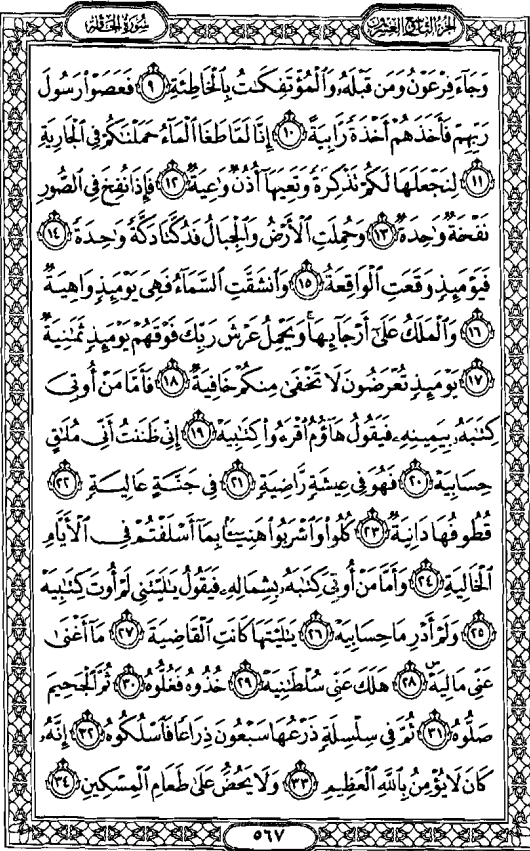 سورة الحاقة
الجزء التاسع والعشرون
وَجَآءَ فِرْعَوْنُ وَمَن قَبْلَهُۥ وَٱلْمُؤْتَفِكَٰتُ بِٱلْخَاطِئَةِ ٩ فَعَصَوْا۟ رَسُولَ
رَبِّهِمْ فَأَخَذَهُمْ أَخْذَةً رَّابِيَةً ١٠ إِنَّا لَمَّا طَغَا ٱلْمَآءُ حَمَلْنَٰكُمْ فِى ٱلْجَارِيَةِ
١١ لِنَجْعَلَهَا لَكُمْ تَذْكِرَةً وَتَعِيَهَآ أُذُنٌ وَٰعِيَةٌ ١٢ فَإِذَا نُفِخَ فِى ٱلصُّورِ
نَفْخَةٌ وَٰحِدَةٌ ١٣ وَحُمِلَتِ ٱلْأَرْضُ وَٱلْجِبَالُ فَدُكَّتَا دَكَّةً وَٰحِدَةً ١٤
فَيَوْمَئِذٍ وَقَعَتِ ٱلْوَاقِعَةُ ١٥ وَٱنشَقَّتِ ٱلسَّمَآءُ فَهِىَ يَوْمَئِذٍ وَاهِيَةٌ
١٦ وَٱلْمَلَكُ عَلَىٰٓ أَرْجَآئِهَا وَيَحْمِلُ عَرْشَ رَبِّكَ فَوْقَهُمْ يَوْمَئِذٍ ثَمَٰنِيَةٌ
١٧ يَوْمَئِذٍ تُعْرَضُونَ لَا تَخْفَىٰ مِنكُمْ خَافِيَةٌ ١٨ فَأَمَّا مَنْ أُوتِىَ
كِتَٰبَهُۥ بِيَمِينِهِۦ فَيَقُولُ هَآؤُمُ ٱقْرَءُوا۟ كِتَٰبِيَهْ ١٩ إِنِّى ظَنَنتُ أَنِّى مُلَٰقٍ
حِسَابِيَهْ ٢٠ فَهُوَ فِى عِيشَةٍ رَّاضِيَةٍ ٢١ فِى جَنَّةٍ عَالِيَةٍ ٢٢
قُطُوفُهَا دَانِيَةٌ ٢٣ كُلُوا۟ وَٱشْرَبُوا۟ هَنِيٓـًٔۢا بِمَآ أَسْلَفْتُمْ فِى ٱلْأَيَّامِ
ٱلْخَالِيَةِ ٢٤ وَأَمَّا مَنْ أُوتِىَ كِتَٰبَهُۥ بِشِمَالِهِۦ فَيَقُولُ يَٰلَيْتَنِى لَمْ أُوتَ كِتَٰبِيَهْ
٢٥ وَلَمْ أَدْرِ مَا حِسَابِيَهْ ٢٦ يَٰلَيْتَهَا كَانَتِ ٱلْقَاضِيَةَ ٢٧ مَآ أَغْنَىٰ
عَنِّى مَالِيَهْ ٢٨ هَلَكَ عَنِّى سُلْطَٰنِيَهْ ٢٩ خُذُوهُ فَغُلُّوهُ ٣٠ ثُمَّ ٱلْجَحِيمَ
صَلُّوهُ ٣١ ثُمَّ فِى سِلْسِلَةٍ ذَرْعُهَا سَبْعُونَ ذِرَاعًا فَٱسْلُكُوهُ ٣٢ إِنَّهُۥ
كَانَ لَا يُؤْمِنُ بِٱللَّهِ ٱلْعَظِيمِ ٣٣ وَلَا يَحُضُّ عَلَىٰ طَعَامِ ٱلْمِسْكِينِ ٣٤
٥٦٧